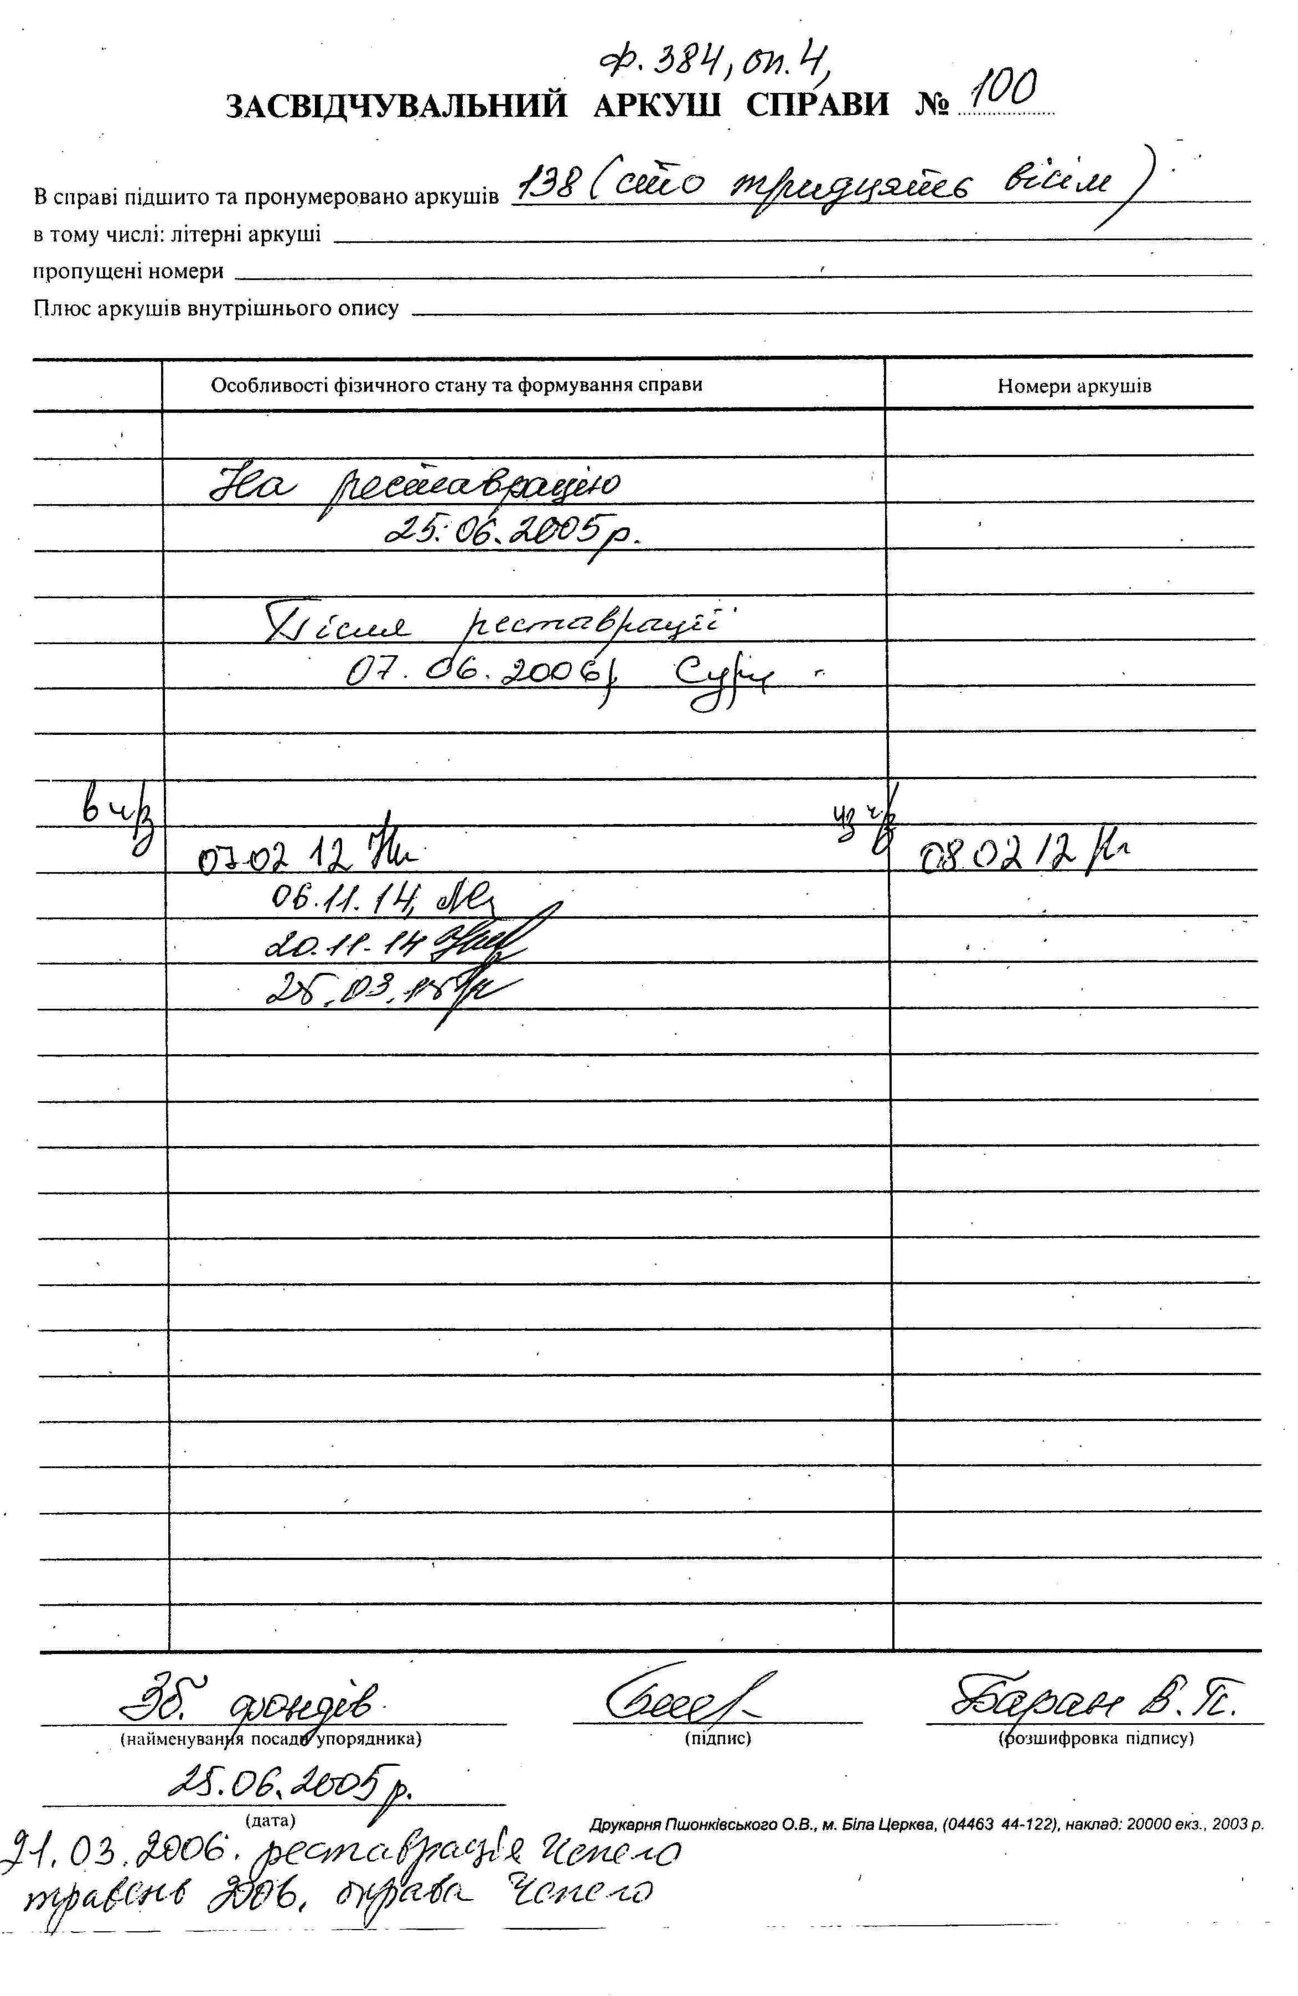 ф. 384, оп. 4,
ЗАСВІДЧУВАЛЬНИЙ АРКУШ СПРАВИ № 100
В справі підшито та пронумеровано аркушів 138 (сто тридцять вісім)
в тому числі: літерні аркуші
пропущені номери
Плюс аркушів внутрішнього опису
Особливості фізичного стану та формування справи Номери аркушів
На реставрацію
25.06.2005 р.
Після реставрації
07.06.2006 р.
в ч/з из ч/з
07 02 12 08 02 12
06.11.14,
20.11.14
25.03.15
Зб. фондів Баран В. П.
(найменування посади упорядника) (підпис) (розшифровка підпису)
25.06.2005 р.
(дата)
Друкарня Пшонківського О.В., м. Біла Церква, (04463 44-122), наклад: 20000 екз., 2003 р.
21.03.2006. реставрація Чепело
травень 2006. оправа Чепело